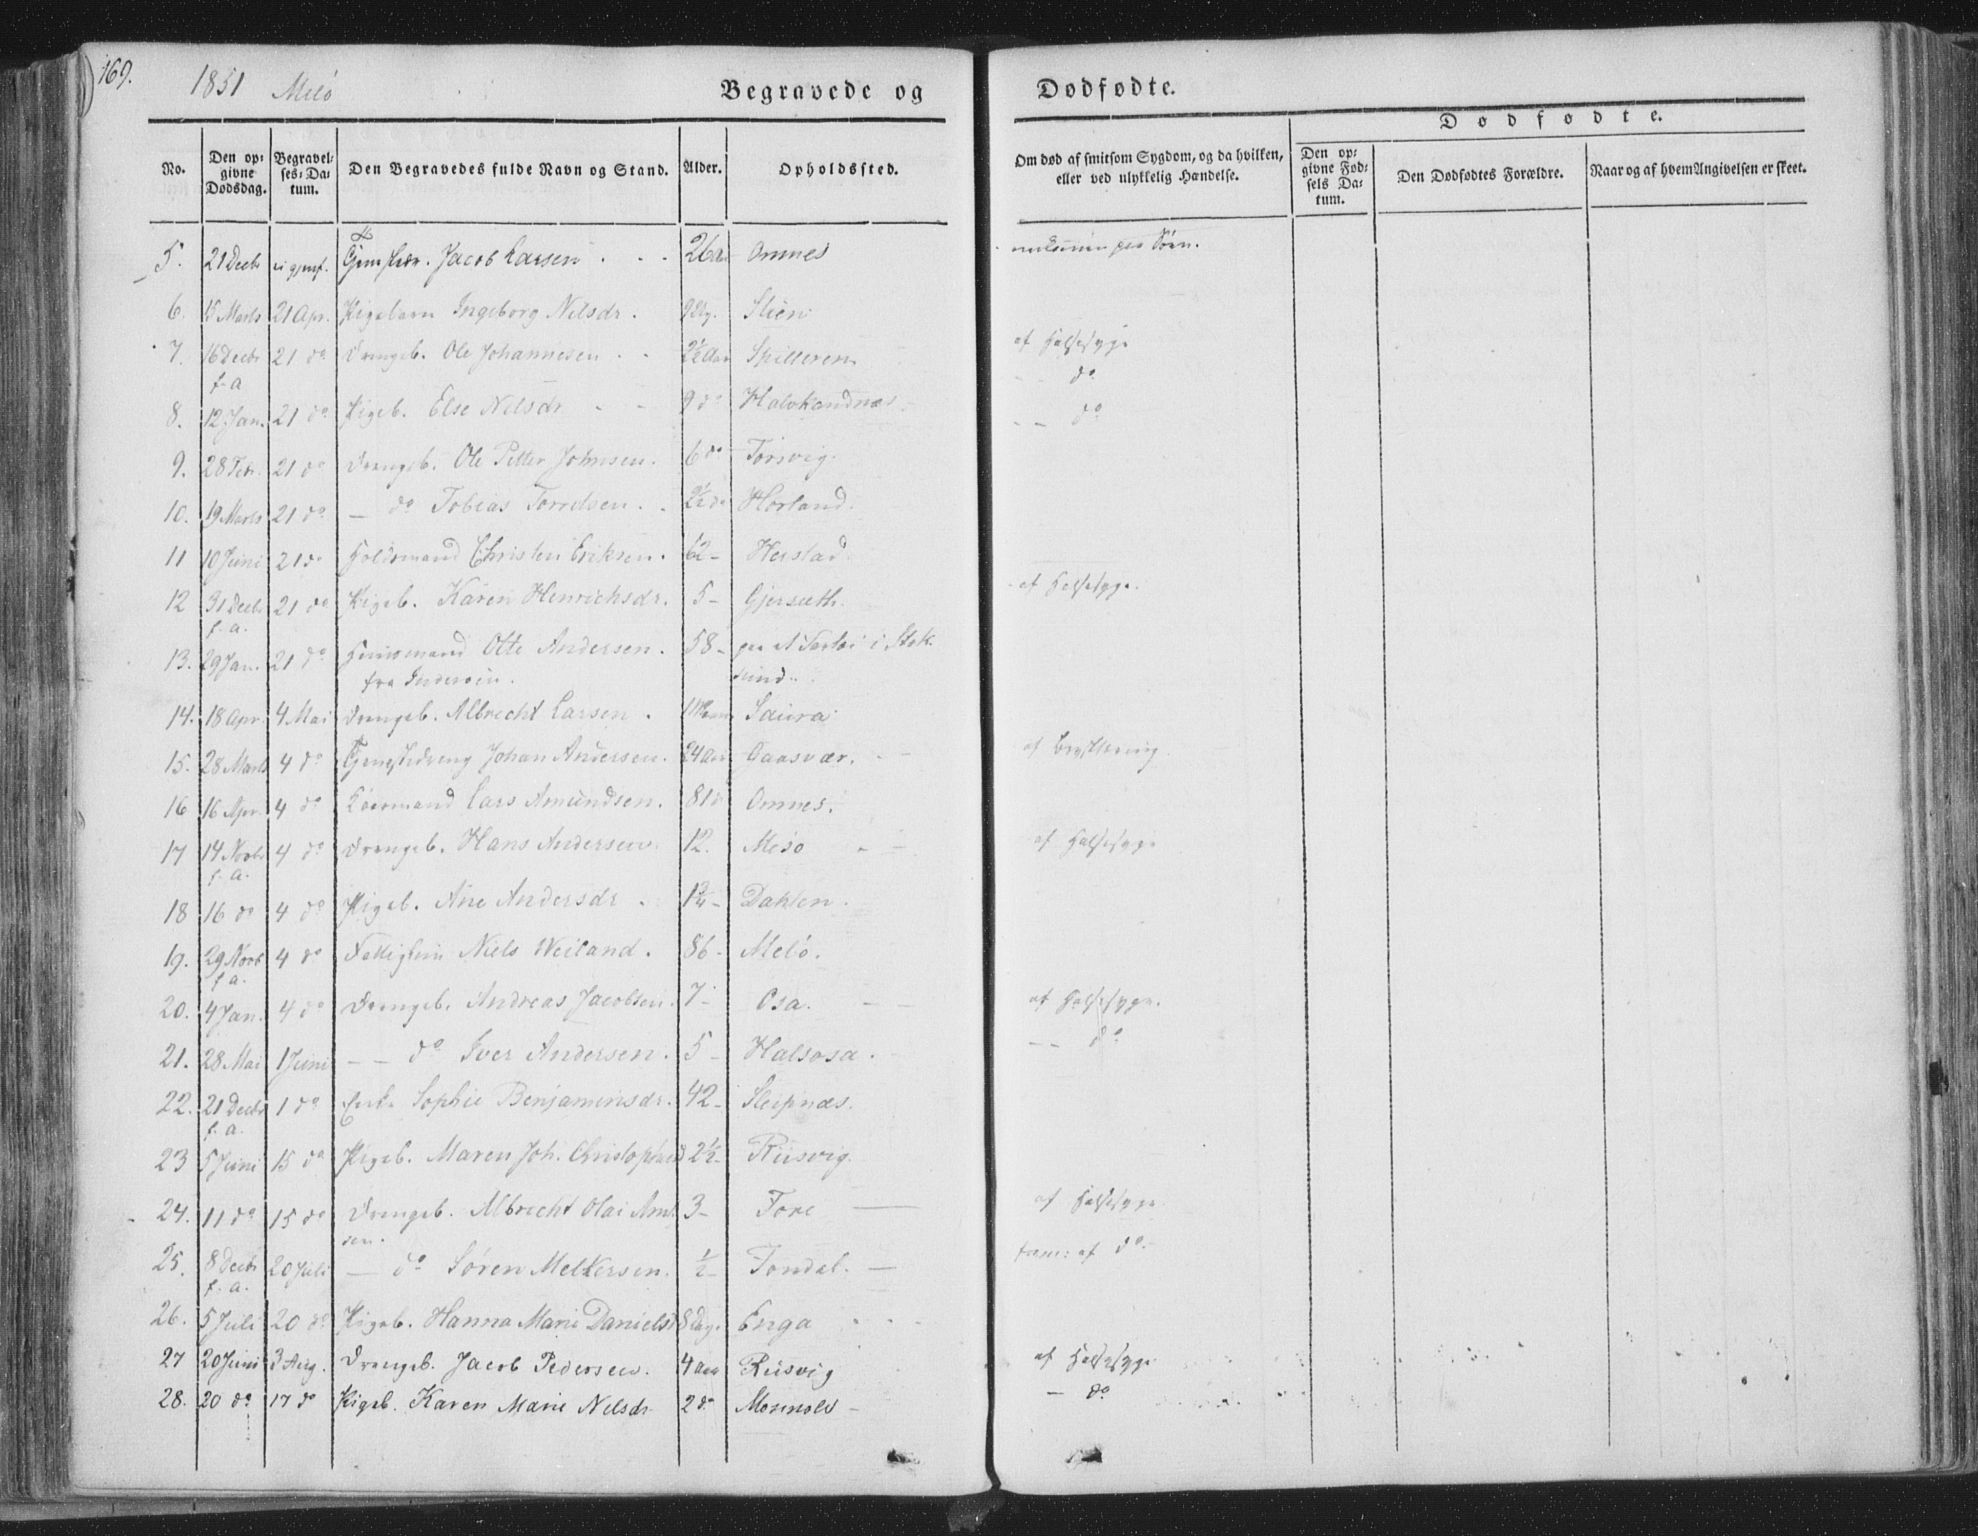 169.
1851 Melö
Begravede og Dødfødte.
Dødfødte.
No. | Den opgivne Dødsdag. | Begravelses-Datum. | Den Begravedes fulde Navn og Stand. | Alder. | Opholdssted. | Om død af smitsom Sygdom, og da hvilken, eller ved ulykkelig Hændelse. | Den opgivne Fødsels Datum. | Den Dødfødtes Forældre. | Naar og af hvem Angivelsen er skeet.
5. | 21 Decbr | Jacob Larsen | 26 | Omnes | paa Søen.
6. | 15 Marts | 21 Apr. | Pigebarn Ingeborg Nilsdr. | 9 | Stien
7. | 16 Decbr f. a | 21 do | Drengeb. Ole Johannesen | 2½ Aar | Spilleren | af Halssyge
8. | 12 Jan. | 21 do | Pigeb. Else Nilsdr | 9 do | do
9. | 28 Febr. | 21 do | Drengeb. Ole Petter Johnsen. | 6 do | Torsvig. | do
10. | 19 Marts | 21 do | — do Tobias | 2½ do | Horland.
11 | 10 Juni | 21 do | Christen Eriksen. | 62 – | Herstad
12 | 31 Decbr f. a. | 21 do | Pigeb. Karen Henrichsdr. | 5 – | Gjerseth. | af Halssyge.
13. | 29 Jan. | 21 do | Huusmand Otte Andersen. | 58 – | i Stok
fra Inderøen. | sund.
14. | 18 Apr. | 4 Mai | Drengeb. Albrecht Larsen. | Saura
15. | 28 Marts | 4 do | Tjenestedreng Johan Andersen. | 24 Aar | Gaasvær. | af
16 | 16 Apr. | 4 do | Lars Amundsen. | 81 | Omnes.
17 | 14 Novbr f. a. | 4 do | Drengeb. Hans Andersen | 12. | Mesø | af Halssyge
18 | 16 do | 4 do | Pigeb. Ane Andersdr | Dahlen.
19. | 29 Novb f a. | 4 do | Niels Weiland. | 86 – | Melö.
20. | 4 Jan. | 4 do | Drengeb. Andreas Jacobsen. | 7 – | Osa. | af Halssyge.
21. | 28 Mai | 1 Juni | — do Iver Andersen. | 5 – | Halsosa. | — do
22. | 21 Decbr f. a. | 1 do | Enke Sophie Benjaminsdr. | 42 – | Sleipnæs.
23 | 5 Juni | 15 do | Pigeb. Maren Joh. | 2½ – | Riisvig.
24. | 11 do | 15 do | Drengeb. Albrecht Olai Amt | 3 – | Fore | af Halssyge
sen.
25. | 8 Decbr f. a. | 20 Juli | — do Søren Melkersen. | ½ – | Fondal. — | af do.
26. | 5 Juli | 20 do | Pigeb. Hanna Marie Danielsd | 8 Dag. | Enga
27 | 20 Juni | 3 Aug. | Drengeb. Jacob Pedersen. | 4 Aar | Riisvig | af Halssyge
28. | 20 do | 17 do | Pigeb. Karen Marie Nilsdr | 2 do | — do